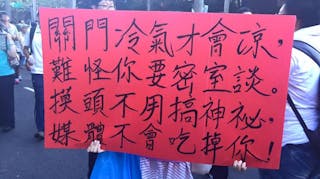 關門冷氣才會涼,
難怪你要密室談。
摸頭不用搞神祕,
媒體不會吃掉你!